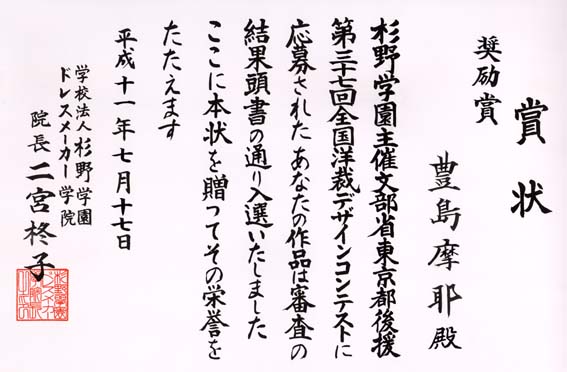 賞状
奨励賞
豊島摩耶殿
杉野学園主催文部省東京都後援
第三十七回全国洋裁デザインコンテストに
応募されたあなたの作品は審査の
結果頭書の通り入選いたしました
ここに本状を贈つてその栄誉を
たたえます
平成十一年七月十七日
学校法人杉野学園
ドレスメーカー学院
院長二宮柊子